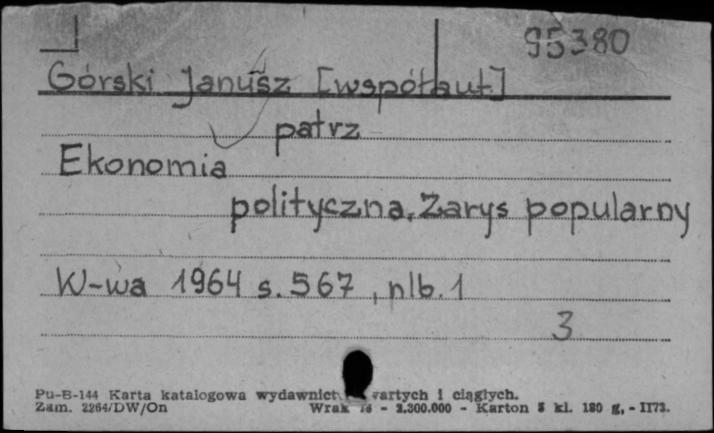 95380
Górski Janusz [współaut.]
patrz
Ekonomia
polityczna. Zarys popularny
W-wa 1964 s. 567, nlb. 1
3
Pu-B-144 Karta katalogowa wydawnict wartych i ciągłych.
Zam. 2264/DW/On Wrak - 2.300.000 - Karton kl. 180 g, - II73.